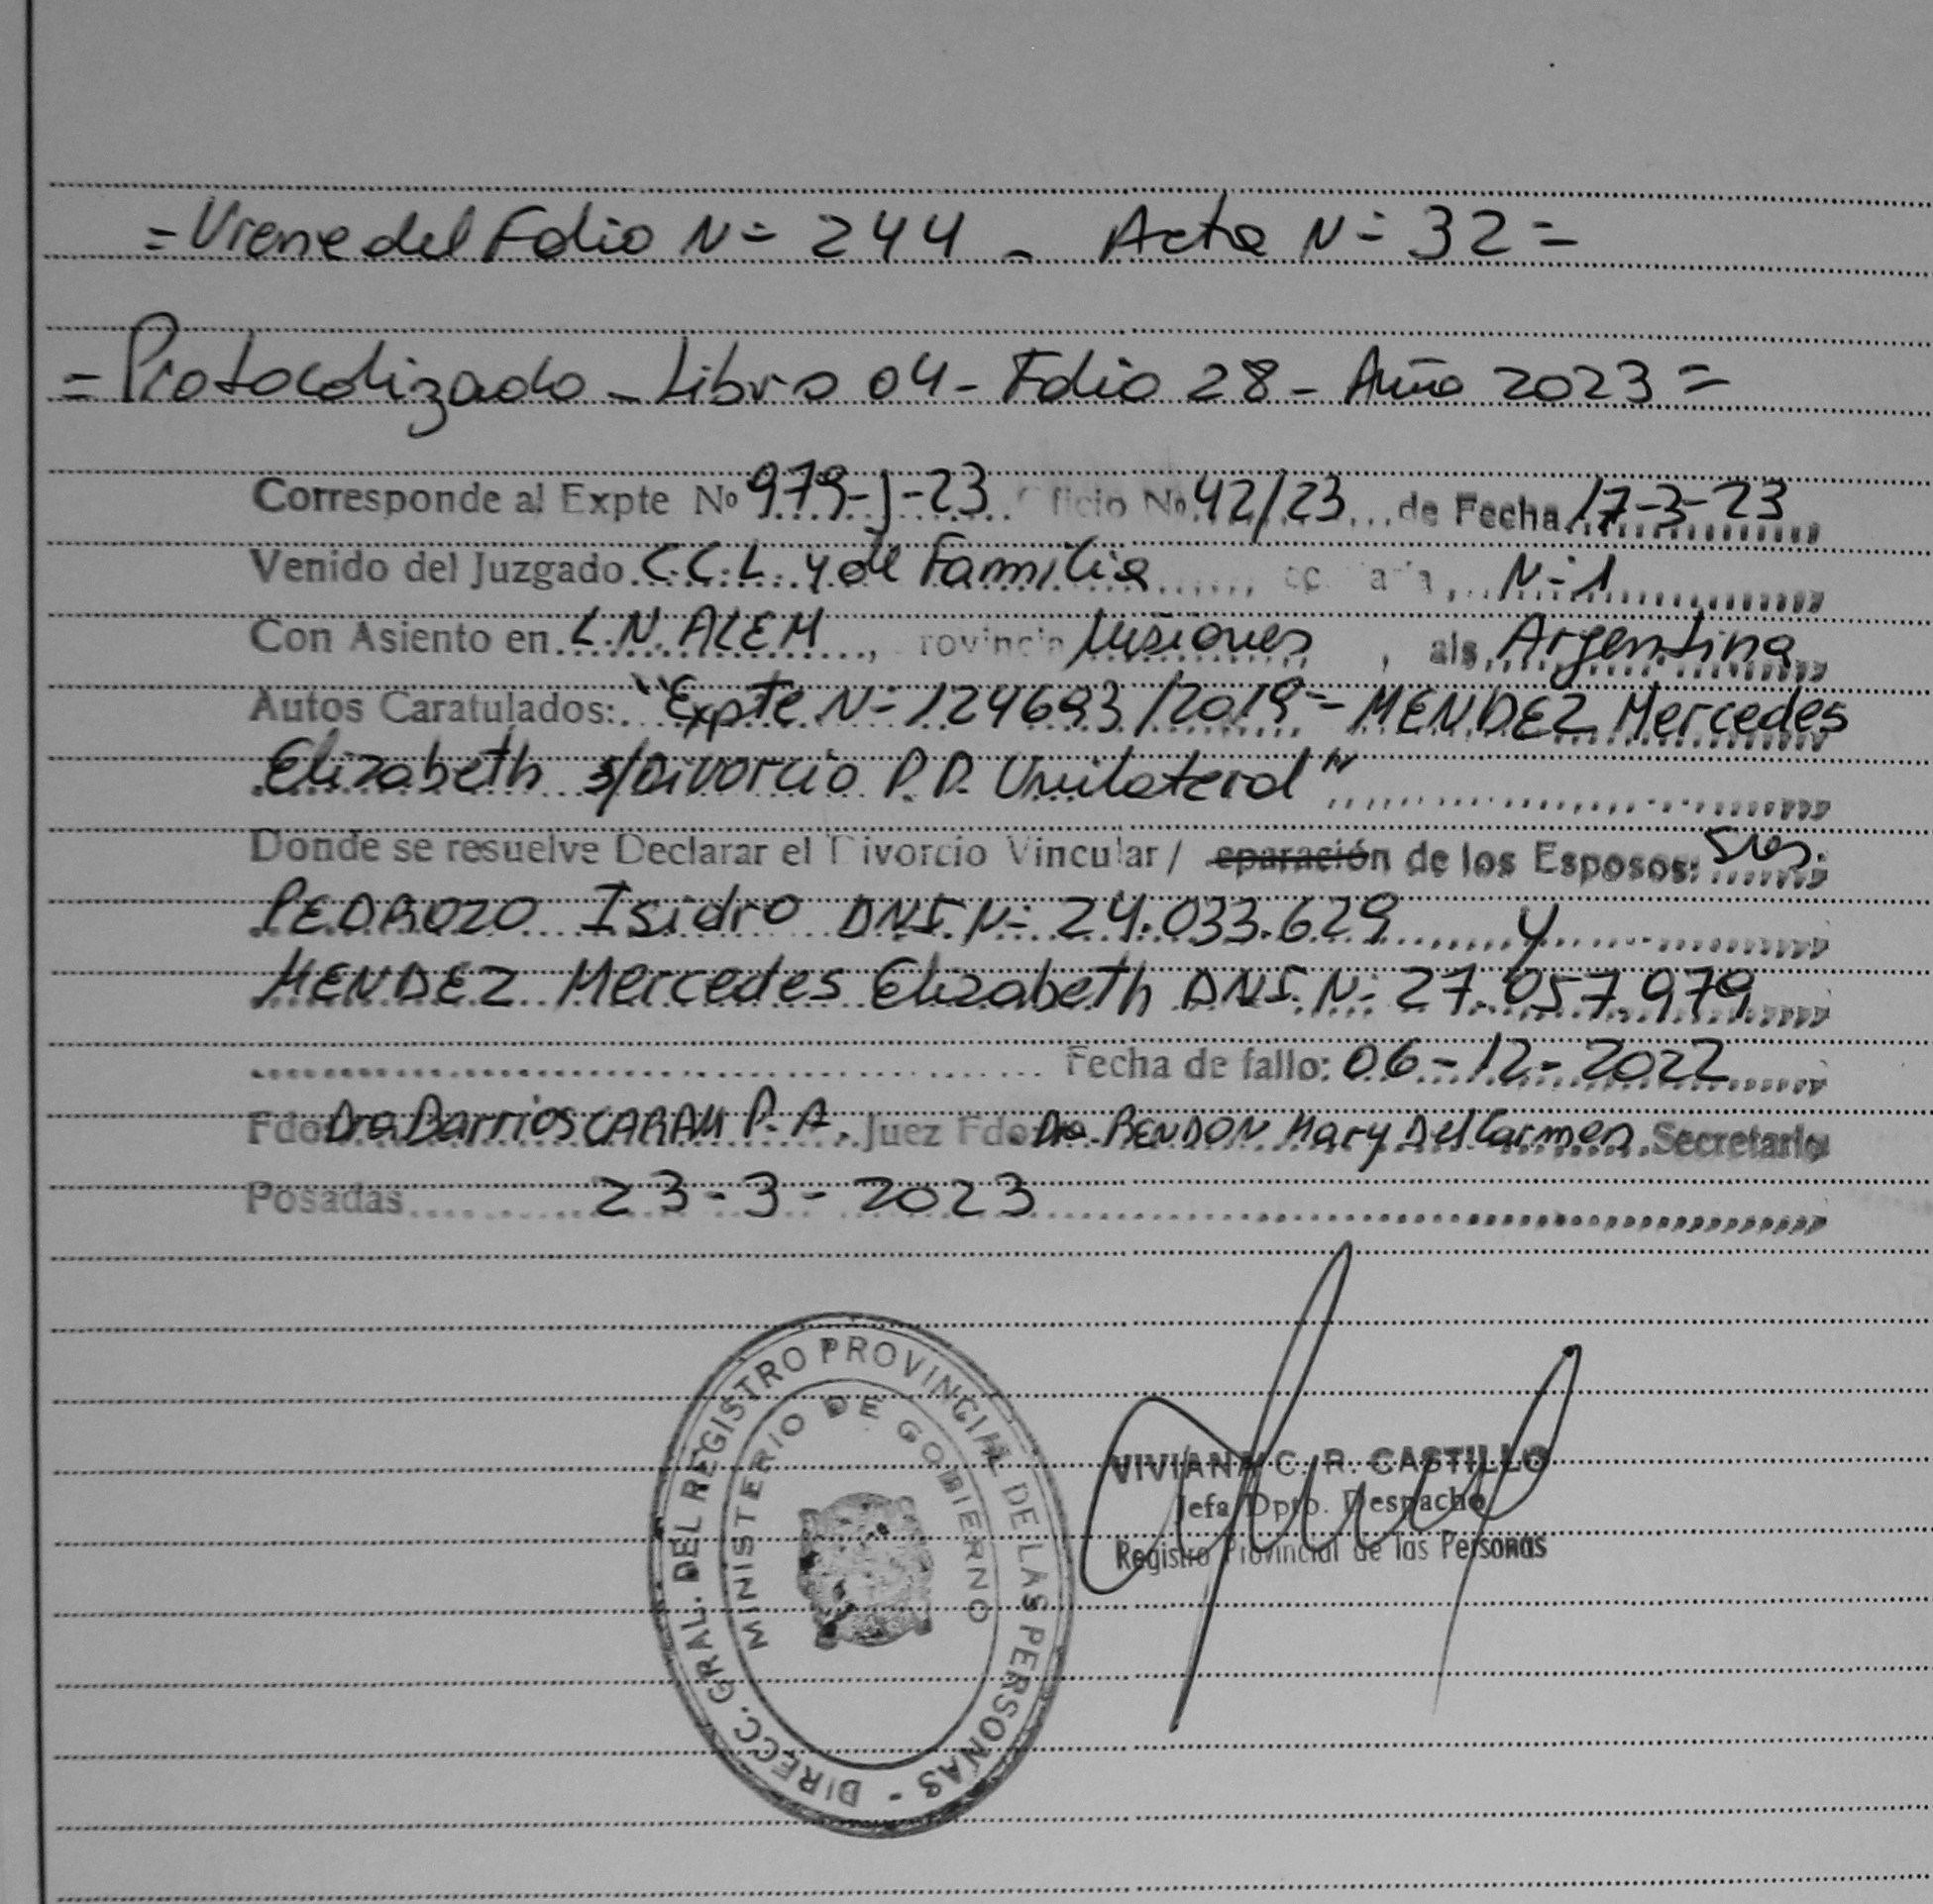 = Viene del Folio N= 244 - Acta N= 32 =
= Protocolizado - Libro 04 - Folio 28 - Año 2023 =
Corresponde al Expte Nº 979-J-23 Oficio Nº 42/23 de Fecha 17-3-23
Venido del Juzgado C.C.L. y de Familia N=1
Con Asiento en L.N. ALEM, rovincia Misiones, aís Argentina
Autos Caratulados: "Expte N= 124693/2019 = MENDEZ Mercedes
Elizabeth s/Divorcio P.P. Unilateral"
Donde se resuelve Declarar el Divorcio Vincular / eparación de los Esposos: Sres.
PEDROZO Isidro DNI. N= 24.033.629 y
MENDEZ Mercedes Elizabeth DNI. N= 27.057.979
Fecha de fallo: 06-12-2022
Fdo Dra Barrios CARAM P. A. Juez Fdo. Dra. RENDON Mary Del Carmen Secretario
Posadas 23-3-2023
DIRECC. GRAL. DEL REGISTRO PROVINCIAL DE LAS PERSONAS -
MINISTERIO DE GOBIERNO
VIVIANA C. R. CASTILLO
Jefa Dpto. Despacho
Registro Provincial de las Personas